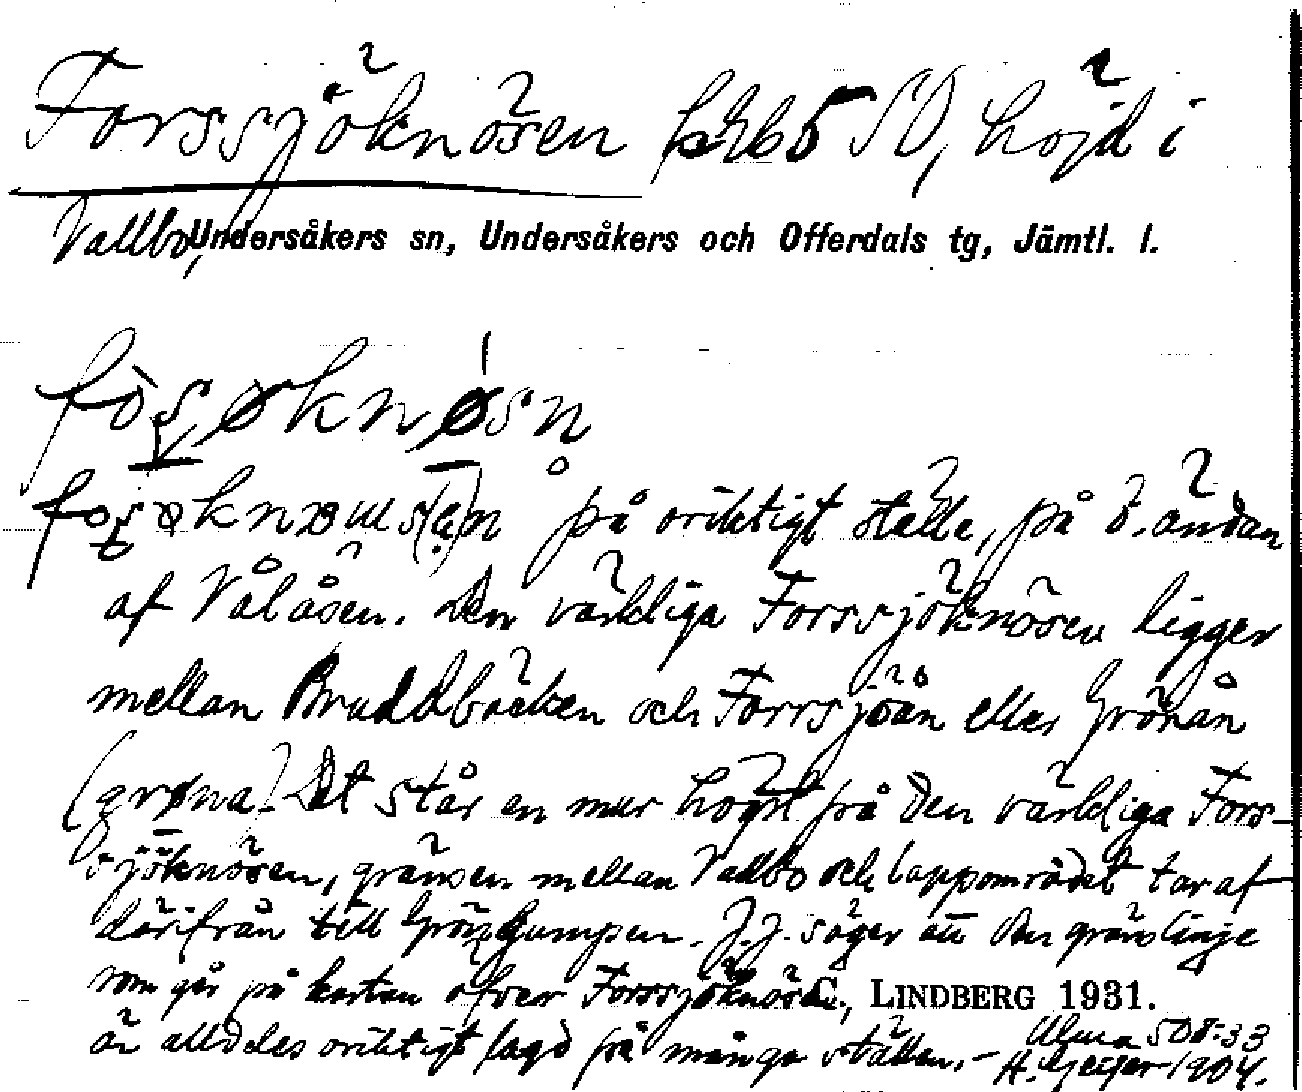 Forssjöknösen k265 SV, höjd i
Vallbo, Undersåkers sn, Undersåkers och Offerdals tg, Jämtl. l.
på oriktigt ställe, på ö. ändan
af Vålåsen. Den värkliga Forssjöknösen ligger
mellan Bruddbäcken och Forrsjöån eller Grönån
(grøna). Det står en mur högst på den värkliga Fors-
sjöknösen, gränsen mellan Vallbo och lappområdet tar af
därifrån till Gröngumpen. J.J. säger att den gränslinje
som går på kartan öfver Forssjöknösen
C. LINDBERG 1931.
är alldeles oriktigt lagd på många ställen. –
Ulma 508:33
H. Geijer 1904.